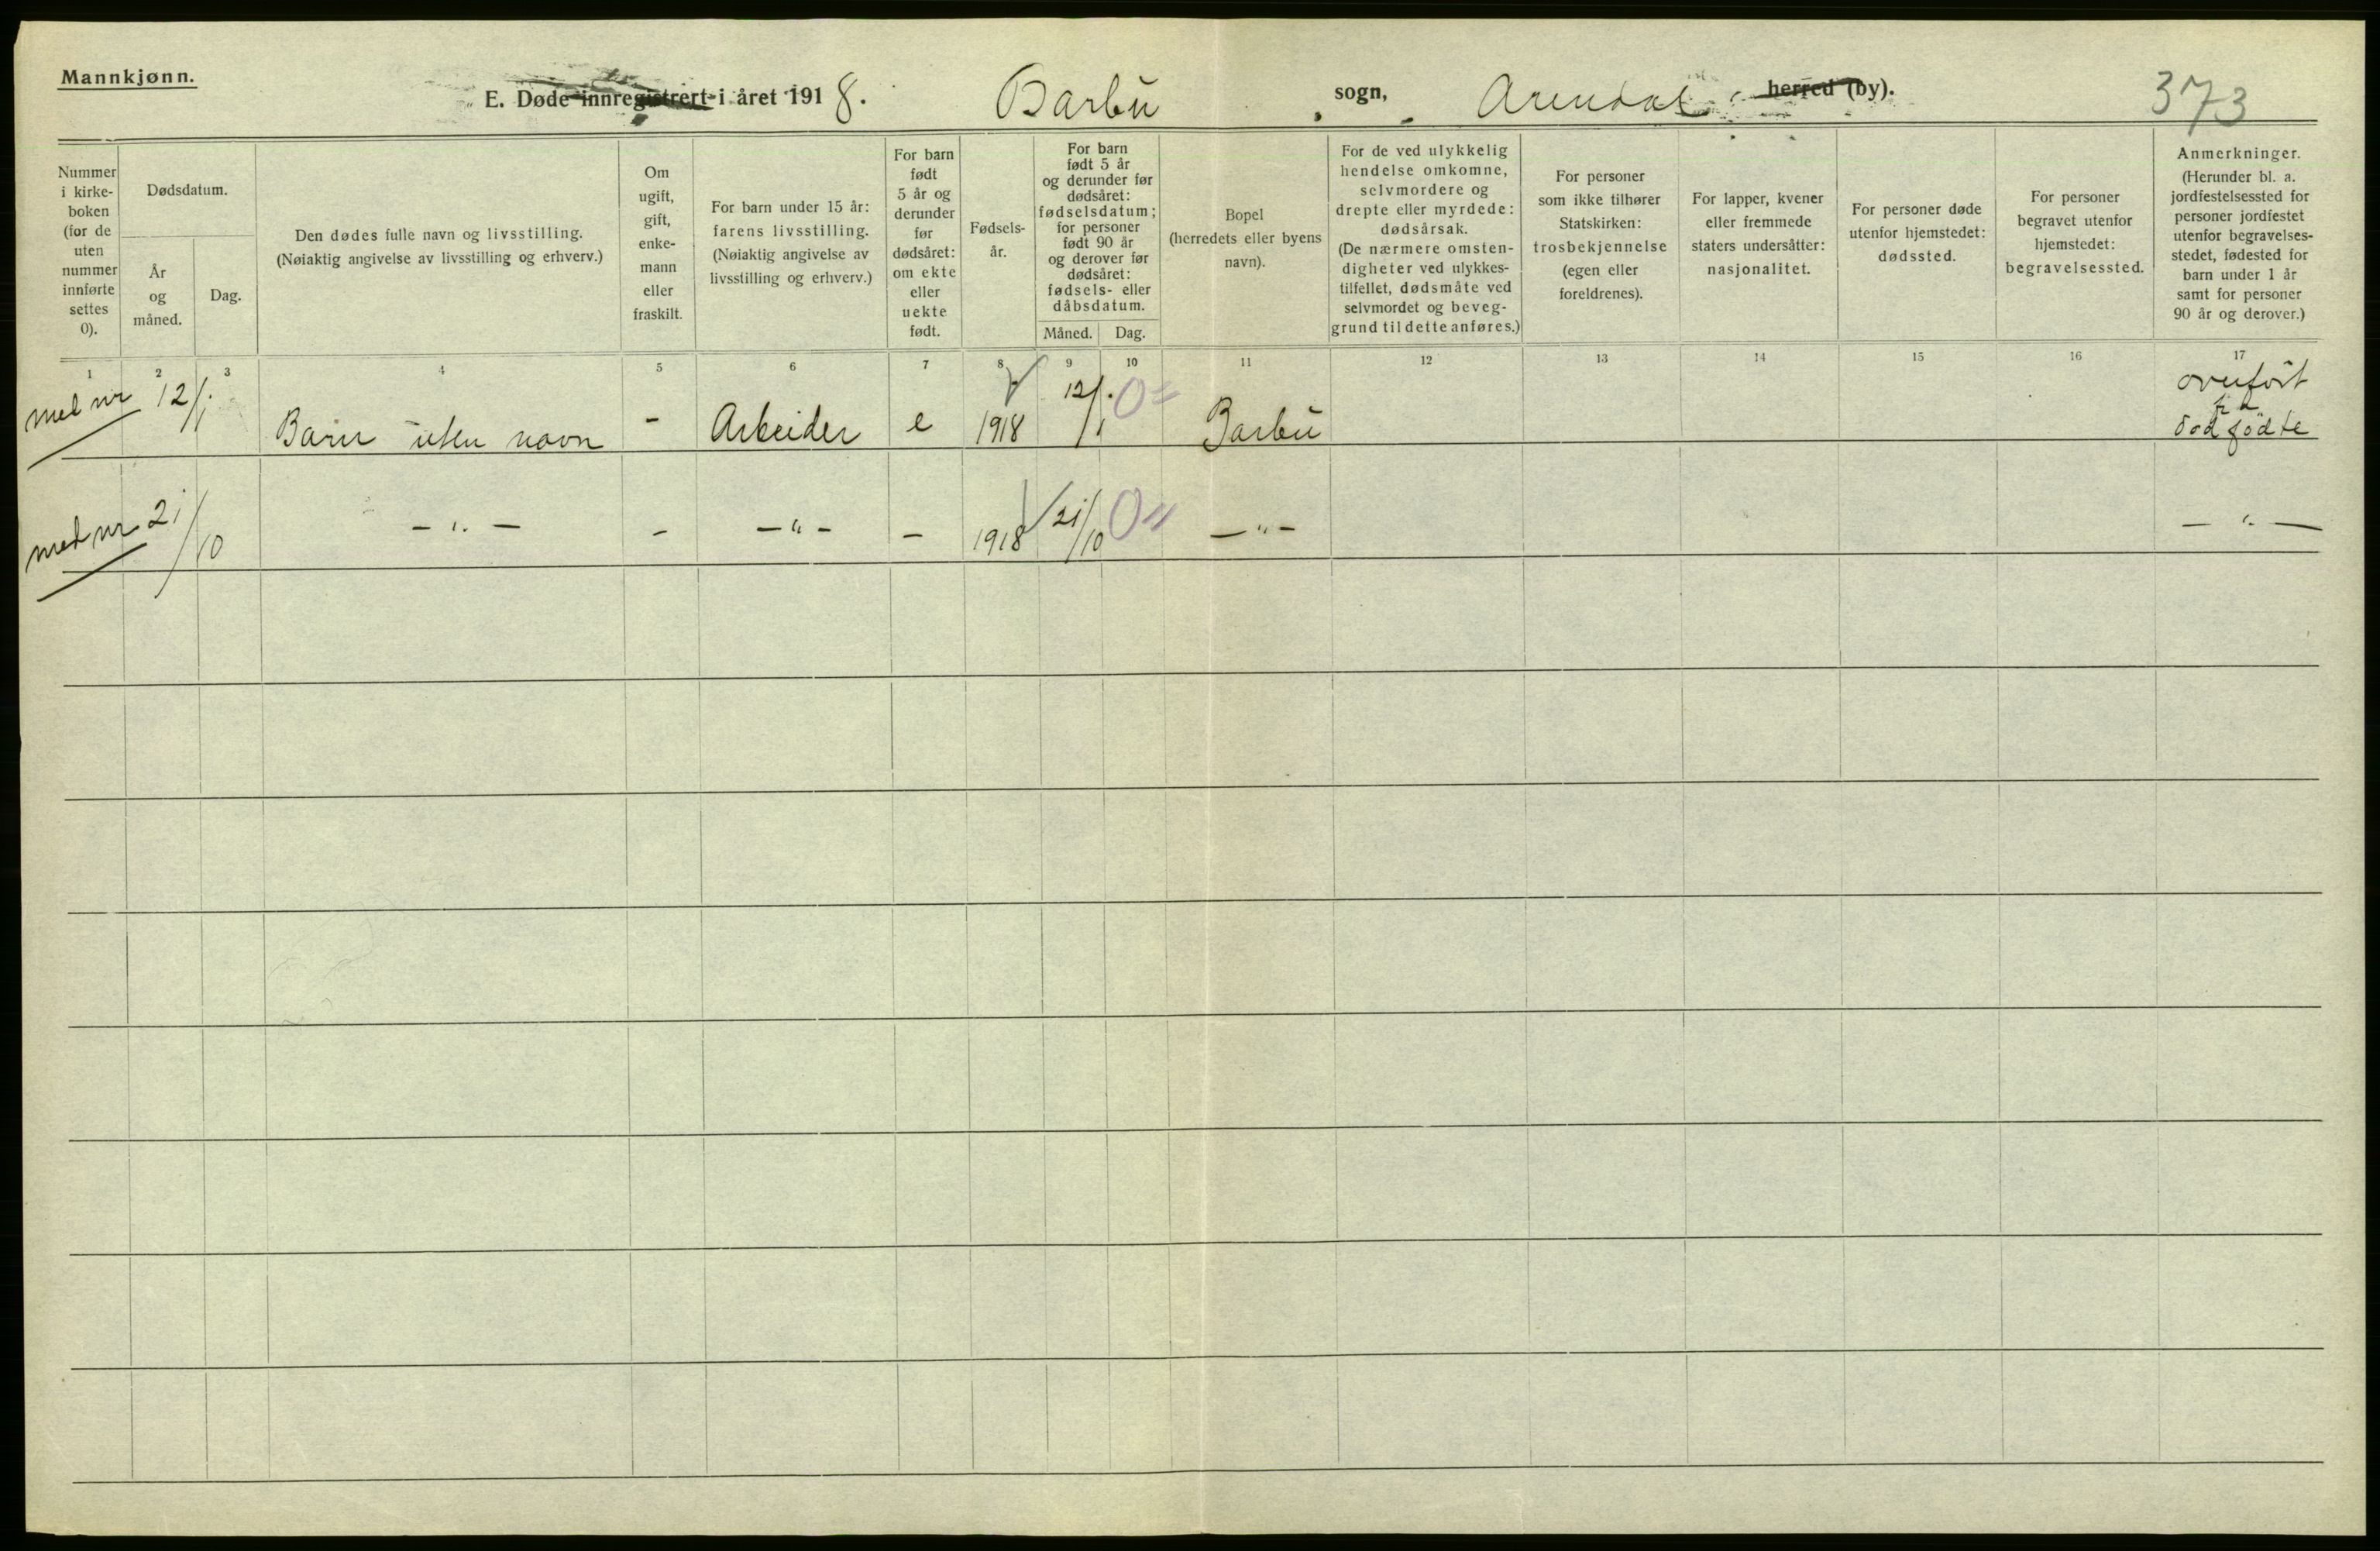 Mannkjønn.
E. Døde innregistrert i året 1918. Barbu sogn, Arendal herred (by). 373
Nummer
i kirke-
boken
(for de
uten
nummer
innførte
settes
0).
Dødsdatum.
År
og
måned.
Dag.
Den dødes fulle navn og livsstilling.
(Nøiaktig angivelse av livsstilling og erhverv.)
Om
ugift,
gift,
enke-
mann
eller
fraskilt.
For barn under 15 år:
farens livsstilling.
(Nøiaktig angivelse av
livsstilling og erhverv.)
For barn
født
5 år og
derunder
før
dødsåret:
om ekte
eller
uekte
født.
Fødsels-
år.
For barn
født 5 år
og derunder før
dødsåret:
fødselsdatum;
for personer
født 90 år
og derover før
dødsåret:
fødsels- eller
dåbsdatum.
Måned. Dag.
Bopel
(herredets eller byens
navn).
For de ved ulykkelig
hendelse omkomne,
selvmordere og
drepte eller myrdede:
dødsårsak.
(De nærmere omsten-
digheter ved ulykkes-
tilfellet, dødsmåte ved
selvmordet og beveg-
grund til dette anføres.)
For personer
som ikke tilhører
Statskirken:
trosbekjennelse
(egen eller
foreldrenes).
For lapper, kvener
eller fremmede
staters undersåtter:
nasjonalitet.
For personer døde
utenfor hjemstedet:
dødssted.
For personer
begravet utenfor
hjemstedet:
begravelsessted.
Anmerkninger.
(Herunder bl. a.
jordfestelsessted for
personer jordfestet
utenfor begravelses-
stedet, fødested for
barn under 1 år
samt for personer
90 år og derover.)
1 2 3 4 5 6 7 8 9 10 11 12 13 14 15 16 17
12/1 Barn uten navn - Arbeider e 1918 12/1 0 Barbu overført
fra
dødfødte
21/10 - " - - - " - - 1918 21/10 0 - " - - " -